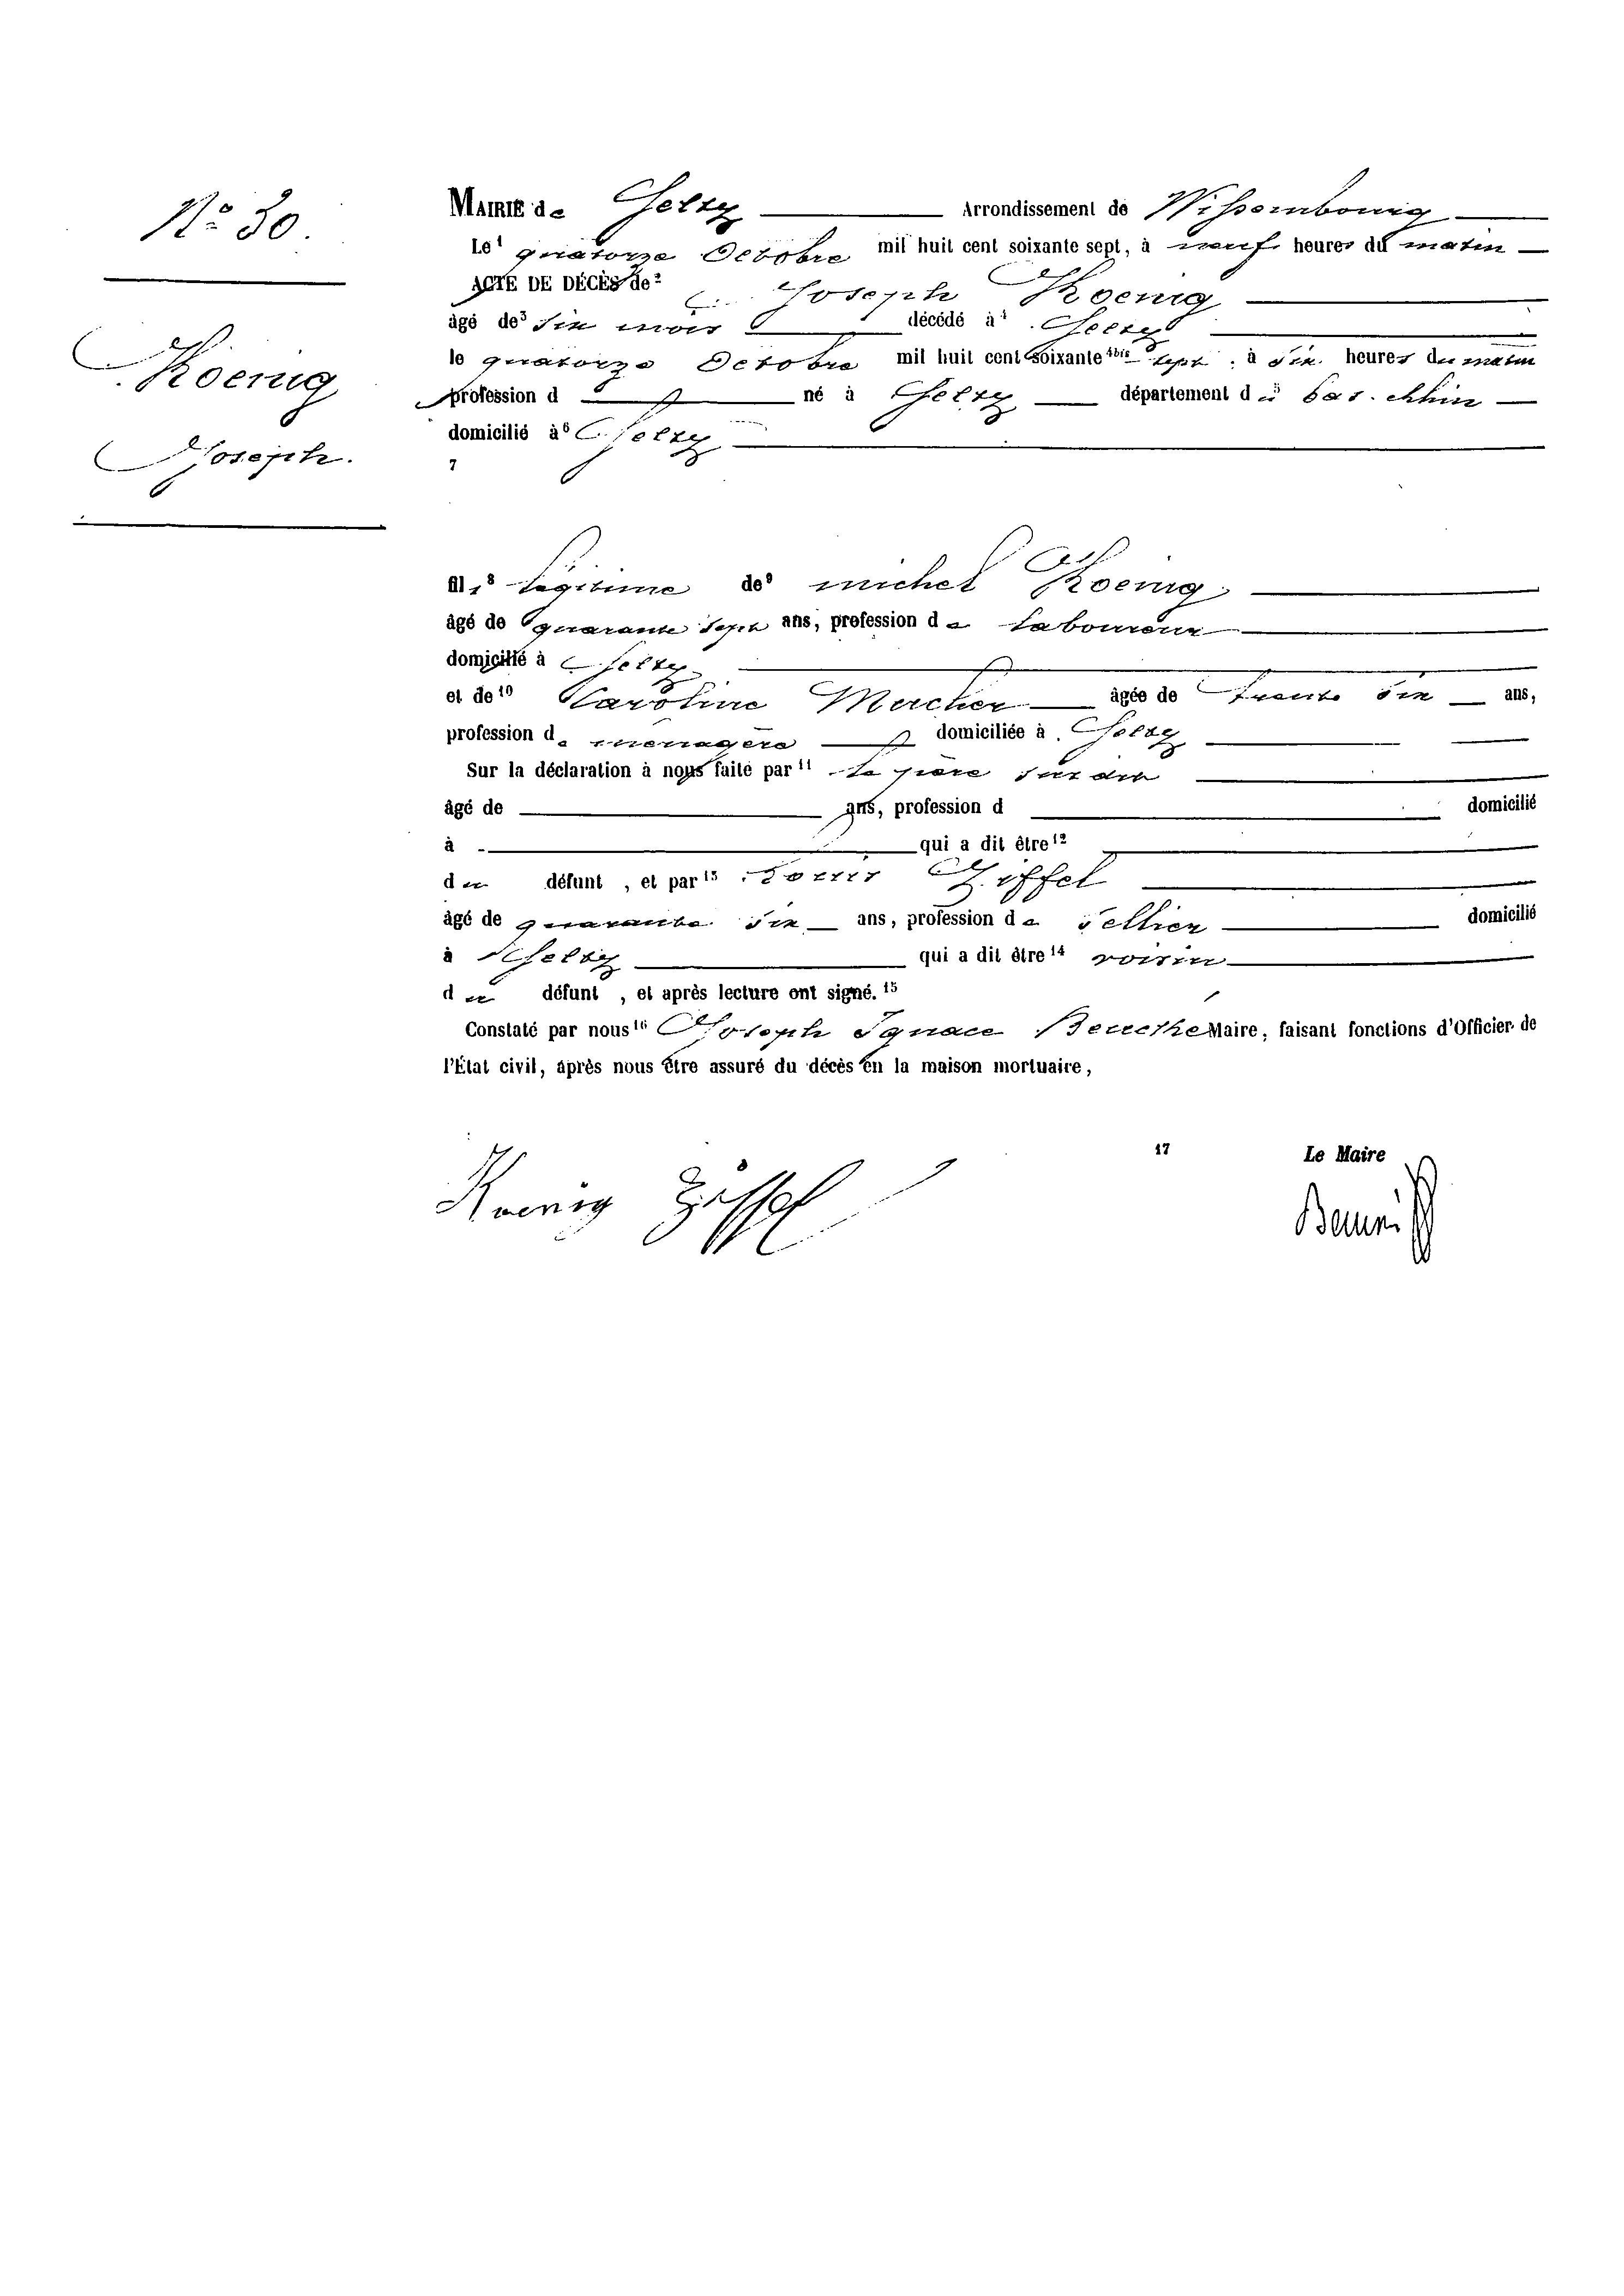 N° 30.
Koenig
Joseph.
MAIRIE de Seltz Arrondissement de Wissembourg
Le¹ quatorze Octobre mil huit cent soixante sept, à neuf heures du matin
ACTE DE DÉCÈS de² Joseph Koenig
âgé de³ six mois décédé à⁴ Seltz
le quatorze Octobre mil huit cent soixante⁴ᵇⁱˢ sept, à six heures du matin
profession d né à Seltz département du bas. Rhin
domicilié à⁶ Seltz
7
fils⁸ légitime de⁹ michel Koenig
âgé de quarante sept ans, profession de laboureur
domicilié à Seltz
et de¹⁰ Caroline âgée de trente six ans,
profession de ménagère domiciliée à Seltz
Sur la déclaration à nous faite par¹¹ le père sus dit
âgé de ans, profession d domicilié
à qui a dit être¹²
du défunt , et par¹³ Louis Ziffel
âgé de quarante six ans, profession de Sellier domicilié
à Seltz qui a dit être¹⁴ voisin
du défunt , et après lecture ont signé.¹⁵
Constaté par nous¹⁶ Joseph Ignace Maire, faisant fonctions d'Officier de
l'État civil, après nous être assuré du décès en la maison mortuaire,
17 Le Maire
Koenig Ziffel